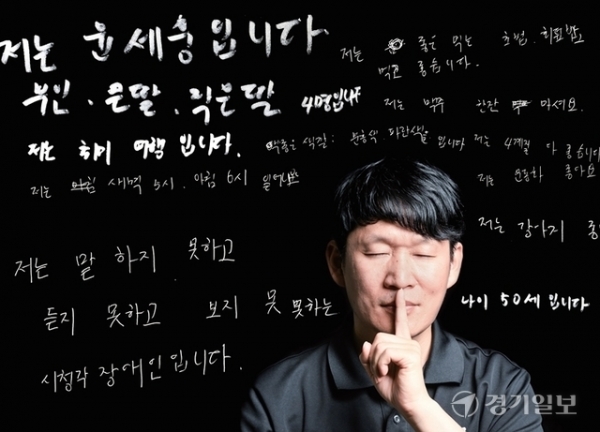 저는 윤세웅입니다.
부인. 큰딸. 작은딸 4명입니다
저는 취미 여행 입니다.
저는 새벽 5시. 아침 6시 일어나요
저는 좋은 먹는 초밥. 회덮밥
먹고 좋습니다.
저는 맥주 한잔 마셔요.
저는 4계절 다 좋습니다
저는 운동하 좋아요
저는 강아지 좋
저는 말 하지 못하고
듣지 못하고 보지 못 못하는
시청각 장애인입니다.
나이 50세입니다
경기일보